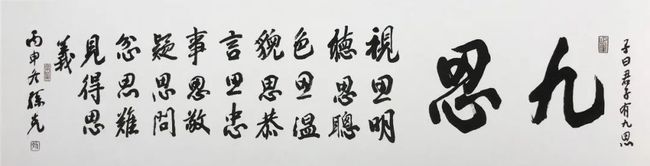 子曰君子有九思
九思
視思明
聽思聰
色思溫
貌思恭
言思忠
事思敬
疑思問
忿思難
見得思
義
丙申